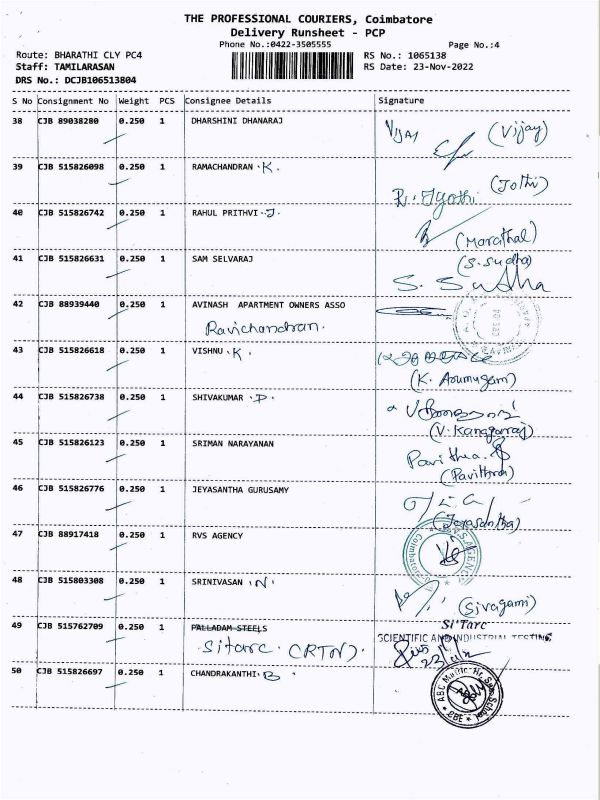 THE PROFESSIONAL COURIERS, Coimbatore
Delivery Runsheet - PCP
Phone No.:0422-3505555 Page No.:4
Route: BHARATHI CLY PC4 RS No.: 1065138
Staff: TAMILARASAN RS Date: 23-Nov-2022
DRS No.: DCJB106513804
S No Consignment No Weight PCS Consignee Details Signature
38 CJB 89038280 0.250 1 DHARSHINI DHANARAJ Vijay (Vijay)
39 CJB 515826098 0.250 1 RAMACHANDRAN .K. (Jothi)
R. Jyothi
40 CJB 515826742 0.250 1 RAHUL PRITHVI .J. (Marathal)
41 CJB 515826631 0.250 1 SAM SELVARAJ (S. Sudha)
S. Sudha
42 CJB 88939440 0.250 1 AVINASH APARTMENT OWNERS ASSO
Ravichandran.
43 CJB 515826618 0.250 1 VISHNU .K.
(K. Arumugam)
44 CJB 515826738 0.250 1 SHIVAKUMAR .P.
(V. Kanagarraj)
45 CJB 515826123 0.250 1 SRIMAN NARAYANAN Pavithra
(Pavithra)
46 CJB 515826776 0.250 1 JEYASANTHA GURUSAMY
(Jeyasantha)
47 CJB 88917418 0.250 1 RVS AGENCY
48 CJB 515803308 0.250 1 SRINIVASAN .N. (Sivagami)
49 CJB 515762709 0.250 1 PALLADAM STEELS Si'Tarc
Sitarc (RTN). SCIENTIFIC AND INDUSTRIAL TESTING
50 CJB 515826697 0.250 1 CHANDRAKANTHI .B